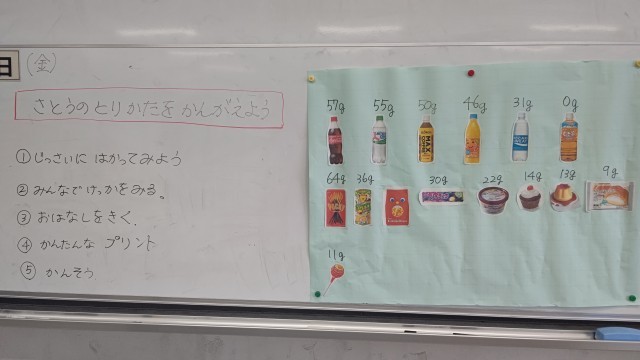 日
(金)
さとうのとりかたをかんがえよう
①じっさいに はかってみよう
②みんなでけっかをみる。
③おはなしをきく.
④かんたんな プリント
⑤かんそう
57g 55g 50g 46g 31g 0g
MAX
64g 36g 30g 22g 14g 13g 9g
11g